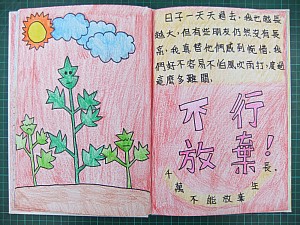 日子一天天過去，我也越長
越大，但有些朋友仍然沒有長
高，我真替他們感到惋惜，我
們好不容易不怕風吹雨打，度過
這麼多難關，
不行
放棄！
千萬
不能放棄生
長。